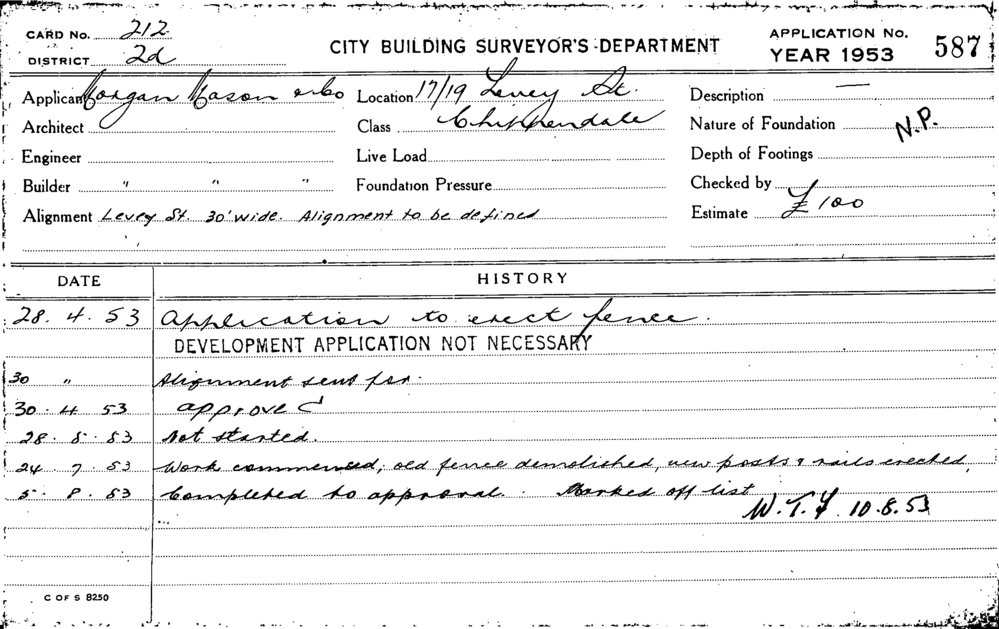 CARD No. 212
DISTRICT 2d
CITY BUILDING SURVEYOR'S DEPARTMENT
APPLICATION No.
YEAR 1953 587
Applicant Morgan Mason & Co
Location 17/19 Levey St.
Description —
Architect
Class Chippendale
Nature of Foundation N.P.
Engineer
Live Load
Depth of Footings
Builder " " "
Foundation Pressure
Checked by
Alignment Levey St. 30' wide. Alignment to be defined
Estimate £100
DATE HISTORY
28. 4. 53 Application to erect fence.
DEVELOPMENT APPLICATION NOT NECESSARY
30 " Alignment sent for.
30. 4. 53 approved
28. 5. 53 Not started.
24. 7. 53 Work commenced, old fence demolished, new posts & rails erected,
5. 8. 53 Completed to approval. Marked off list
W.T.Y. 10.8.53
C OF S 8250